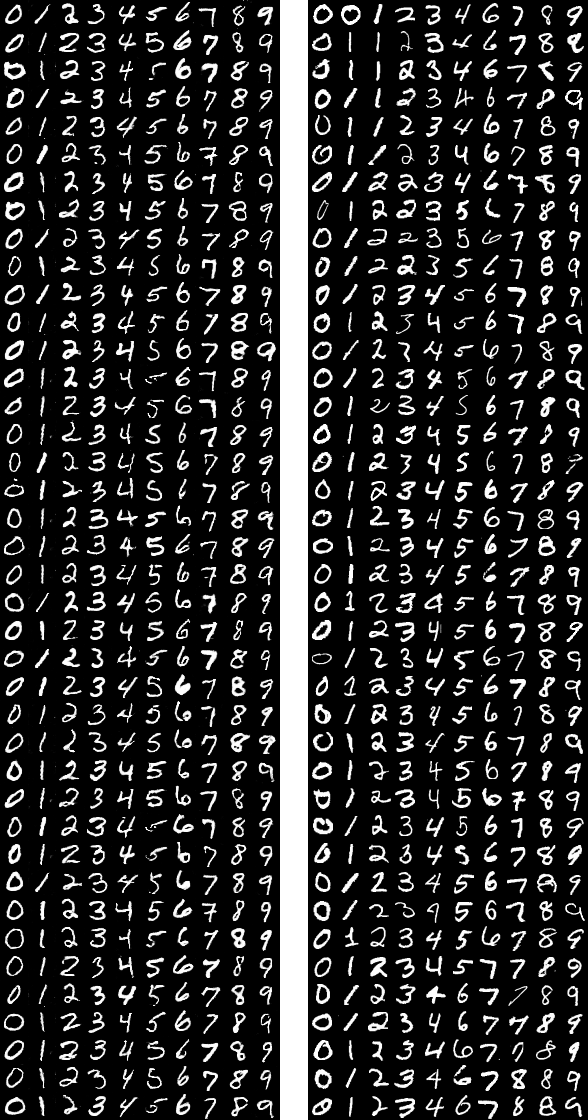 0 1 2 3 4 5 6 7 8 9
0 1 2 3 4 5 6 7 8 9
0 1 2 3 4 5 6 7 8 9
0 1 2 3 4 5 6 7 8 9
0 1 2 3 4 5 6 7 8 9
0 1 2 3 4 5 6 7 8 9
0 1 2 3 4 5 6 7 8 9
0 1 2 3 4 5 6 7 8 9
0 1 2 3 4 5 6 7 8 9
0 1 2 3 4 5 6 7 8 9
0 1 2 3 4 5 6 7 8 9
0 1 2 3 4 5 6 7 8 9
0 1 2 3 4 5 6 7 8 9
0 1 2 3 4 5 6 7 8 9
0 1 2 3 4 5 6 7 8 9
0 1 2 3 4 5 6 7 8 9
0 1 2 3 4 5 6 7 8 9
0 1 2 3 4 5 6 7 8 9
0 1 2 3 4 5 6 7 8 9
0 1 2 3 4 5 6 7 8 9
0 1 2 3 4 5 6 7 8 9
0 1 2 3 4 5 6 7 8 9
0 1 2 3 4 5 6 7 8 9
0 1 2 3 4 5 6 7 8 9
0 1 2 3 4 5 6 7 8 9
0 1 2 3 4 5 6 7 8 9
0 1 2 3 4 5 6 7 8 9
0 1 2 3 4 5 6 7 8 9
0 1 2 3 4 5 6 7 8 9
0 1 2 3 4 5 6 7 8 9
0 1 2 3 4 5 6 7 8 9
0 1 2 3 4 5 6 7 8 9
0 1 2 3 4 5 6 7 8 9
0 1 2 3 4 5 6 7 8 9
0 1 2 3 4 5 6 7 8 9
0 1 2 3 4 5 6 7 8 9
0 1 2 3 4 5 6 7 8 9
0 1 2 3 4 5 6 7 8 9
0 1 2 3 4 5 6 7 8 9
0 1 2 3 4 5 6 7 8 9
0 0 1 2 3 4 6 7 8 9
0 1 1 2 3 4 6 7 8 8
0 1 1 2 3 4 6 7 8 9
0 1 1 2 3 4 6 7 8 9
0 1 1 2 3 4 6 7 8 9
0 1 1 2 3 4 6 7 8 9
0 1 2 2 3 4 6 7 8 9
0 1 2 2 3 5 6 7 8 9
0 1 2 2 3 5 6 7 8 9
0 1 2 2 3 5 6 7 8 9
0 1 2 3 4 5 6 7 8 9
0 1 2 3 4 5 6 7 8 9
0 1 2 3 4 5 6 7 8 9
0 1 2 3 4 5 6 7 8 9
0 1 2 3 4 5 6 7 8 9
0 1 2 3 4 5 6 7 8 9
0 1 2 3 4 5 6 7 8 9
0 1 2 3 4 5 6 7 8 9
0 1 2 3 4 5 6 7 8 9
0 1 2 3 4 5 6 7 8 9
0 1 2 3 4 5 6 7 8 9
0 1 2 3 4 5 6 7 8 9
0 1 2 3 4 5 6 7 8 9
0 1 2 3 4 5 6 7 8 9
0 1 2 3 4 5 6 7 8 9
0 1 2 3 4 5 6 7 8 9
0 1 2 3 4 5 6 7 8 9
0 1 2 3 4 5 6 7 8 9
0 1 2 3 4 5 6 7 8 9
0 1 2 3 4 5 6 7 8 9
0 1 2 3 4 5 6 7 8 9
0 1 2 3 4 5 6 7 8 9
0 1 2 3 4 5 6 7 8 9
0 1 2 3 4 5 6 7 8 9
0 1 2 3 4 5 7 7 8 9
0 1 2 3 4 6 7 7 8 9
0 1 2 3 4 6 7 7 8 9
0 1 2 3 4 6 7 7 8 9
0 1 2 3 4 6 7 8 8 9
0 1 2 3 4 6 7 8 8 6